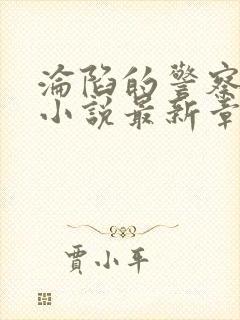 淪陷的警察
小說最新章
賈小平